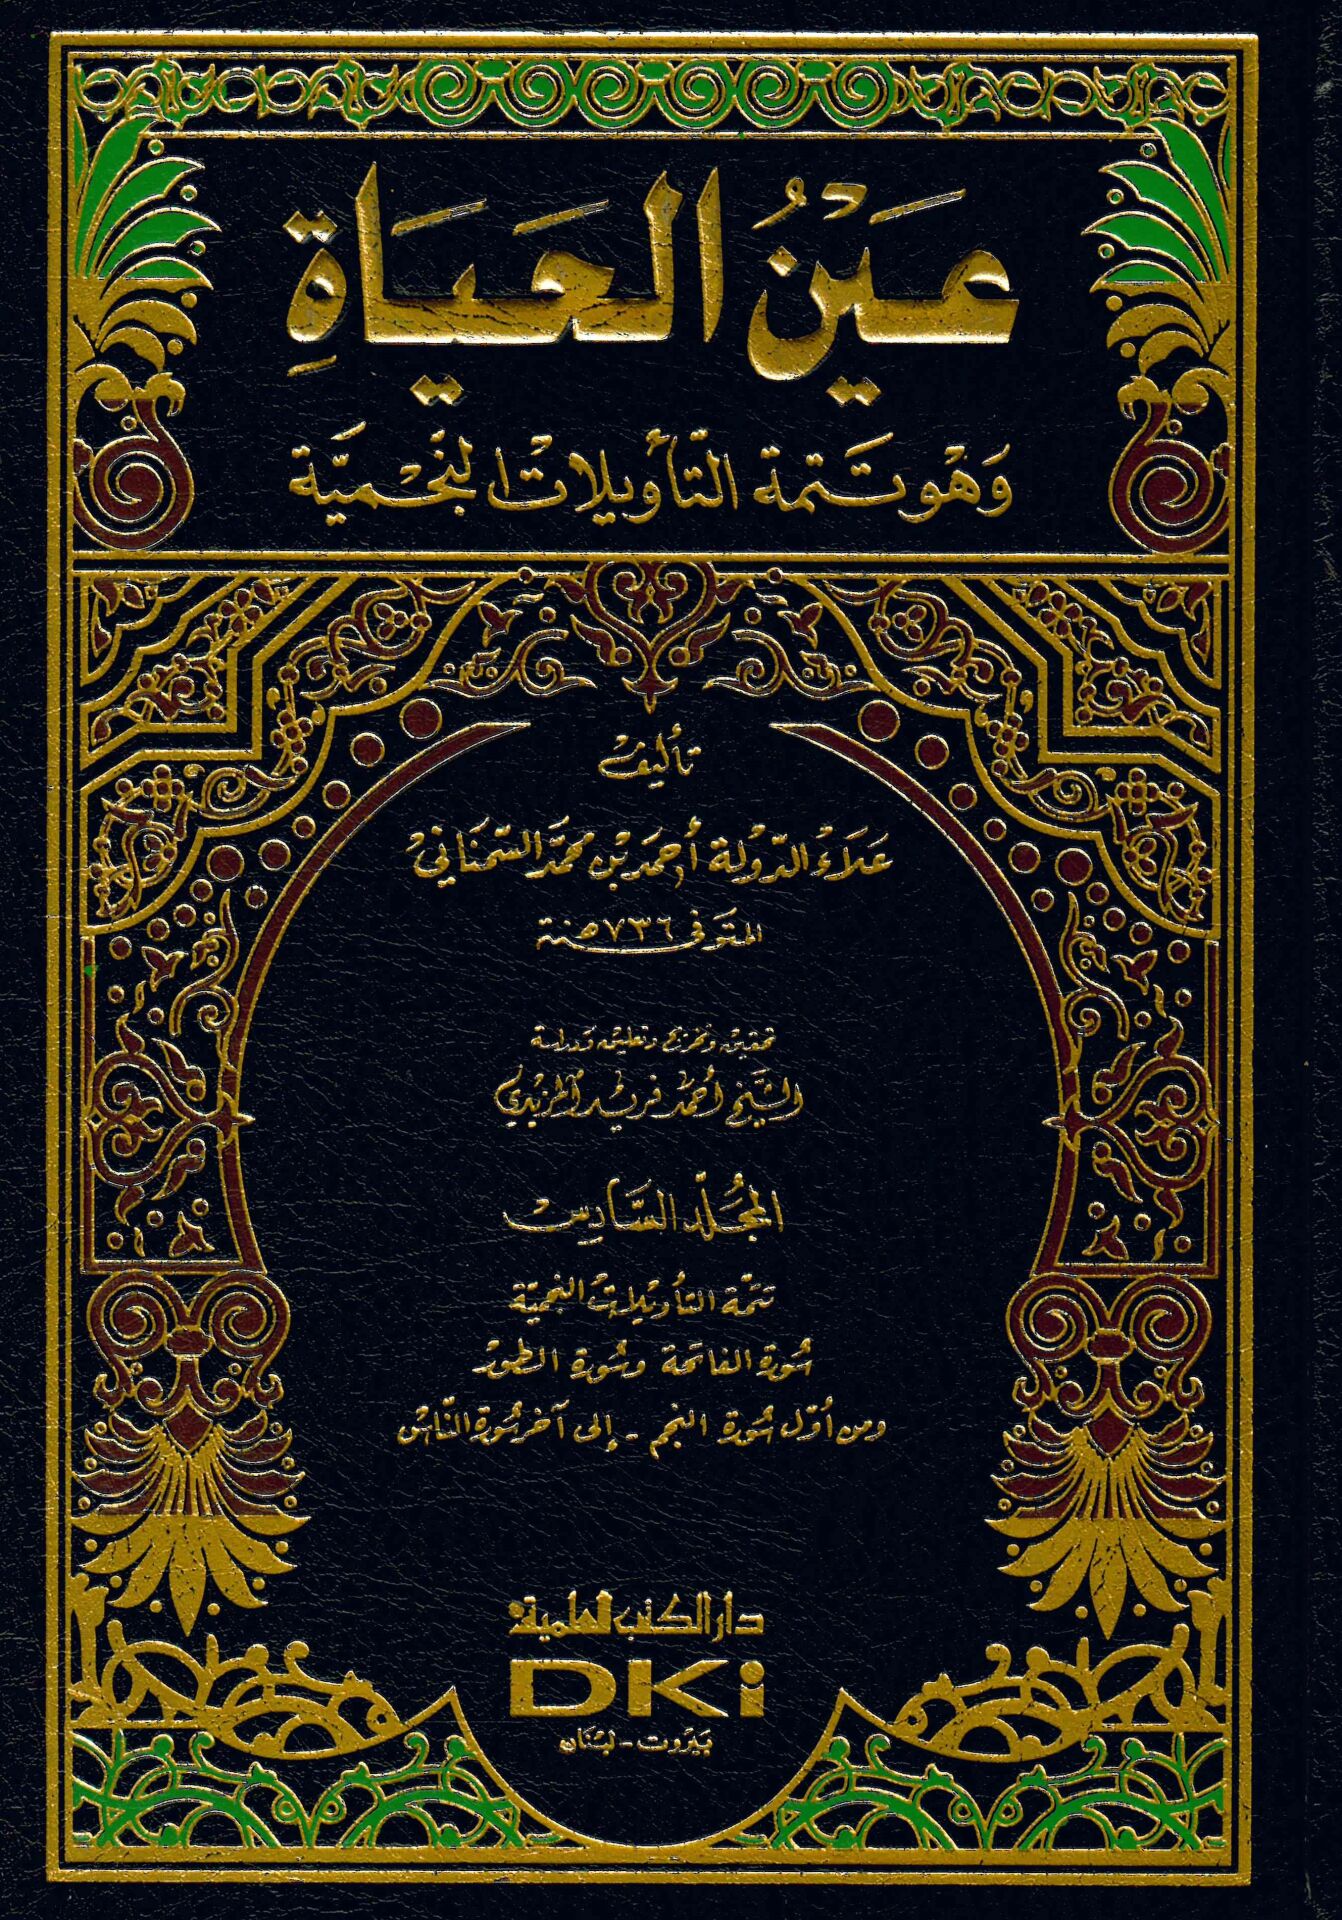 عَيْنُ الحَيَاةِ
وَهُو تَتمة التَّأويلاتْ النَجْميَّة
تأليفْ
عَلَاءُ الدّولة أحمَد بْن محمَّد السّمنَاني
المتوَفى ٧٣٦ هـنة
تحقيق وتخريج وتعليق ودراسة
الشيّخ أحمَد فريْد المزيْدي
المجُلّد السَّادسْ
تتمّة التأويلاتْ النجميّة
سُورَة الفاتحة وسُورة الطور
ومن أوّل سُورَة النجم - إلى آخر سُورة النَّاسْ
دار الكتب العلمية
DKi
بَيْروت - لبْنَان